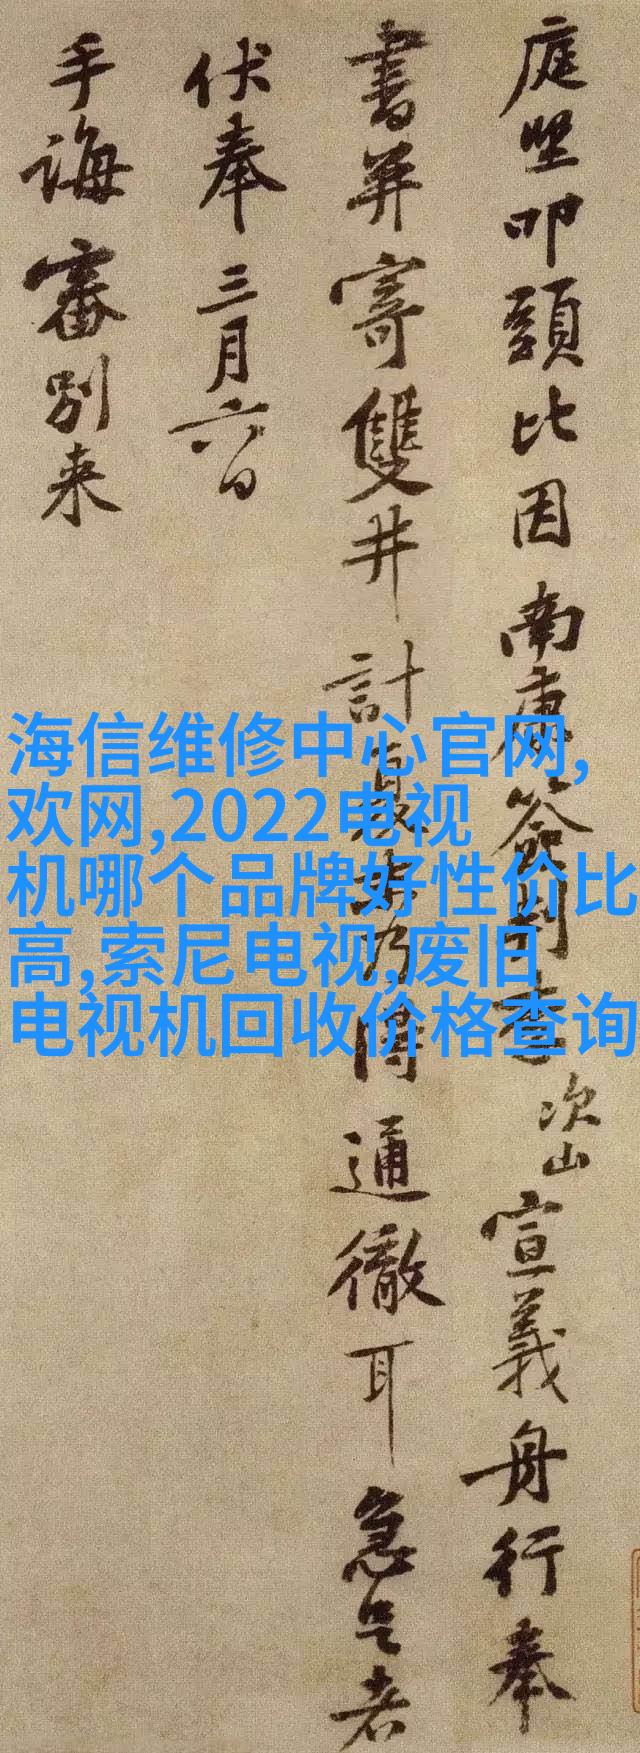 庭堅叩頭比因南康簽判李次山宣義舟行奉
書并寄雙井計夏末乃得通徹耳急足者
伏奉三月六日
手誨審別来
海信维修中心官网,
欢网,2022电视
机哪个品牌好性价比
高,索尼电视,废旧
电视机回收价格查询